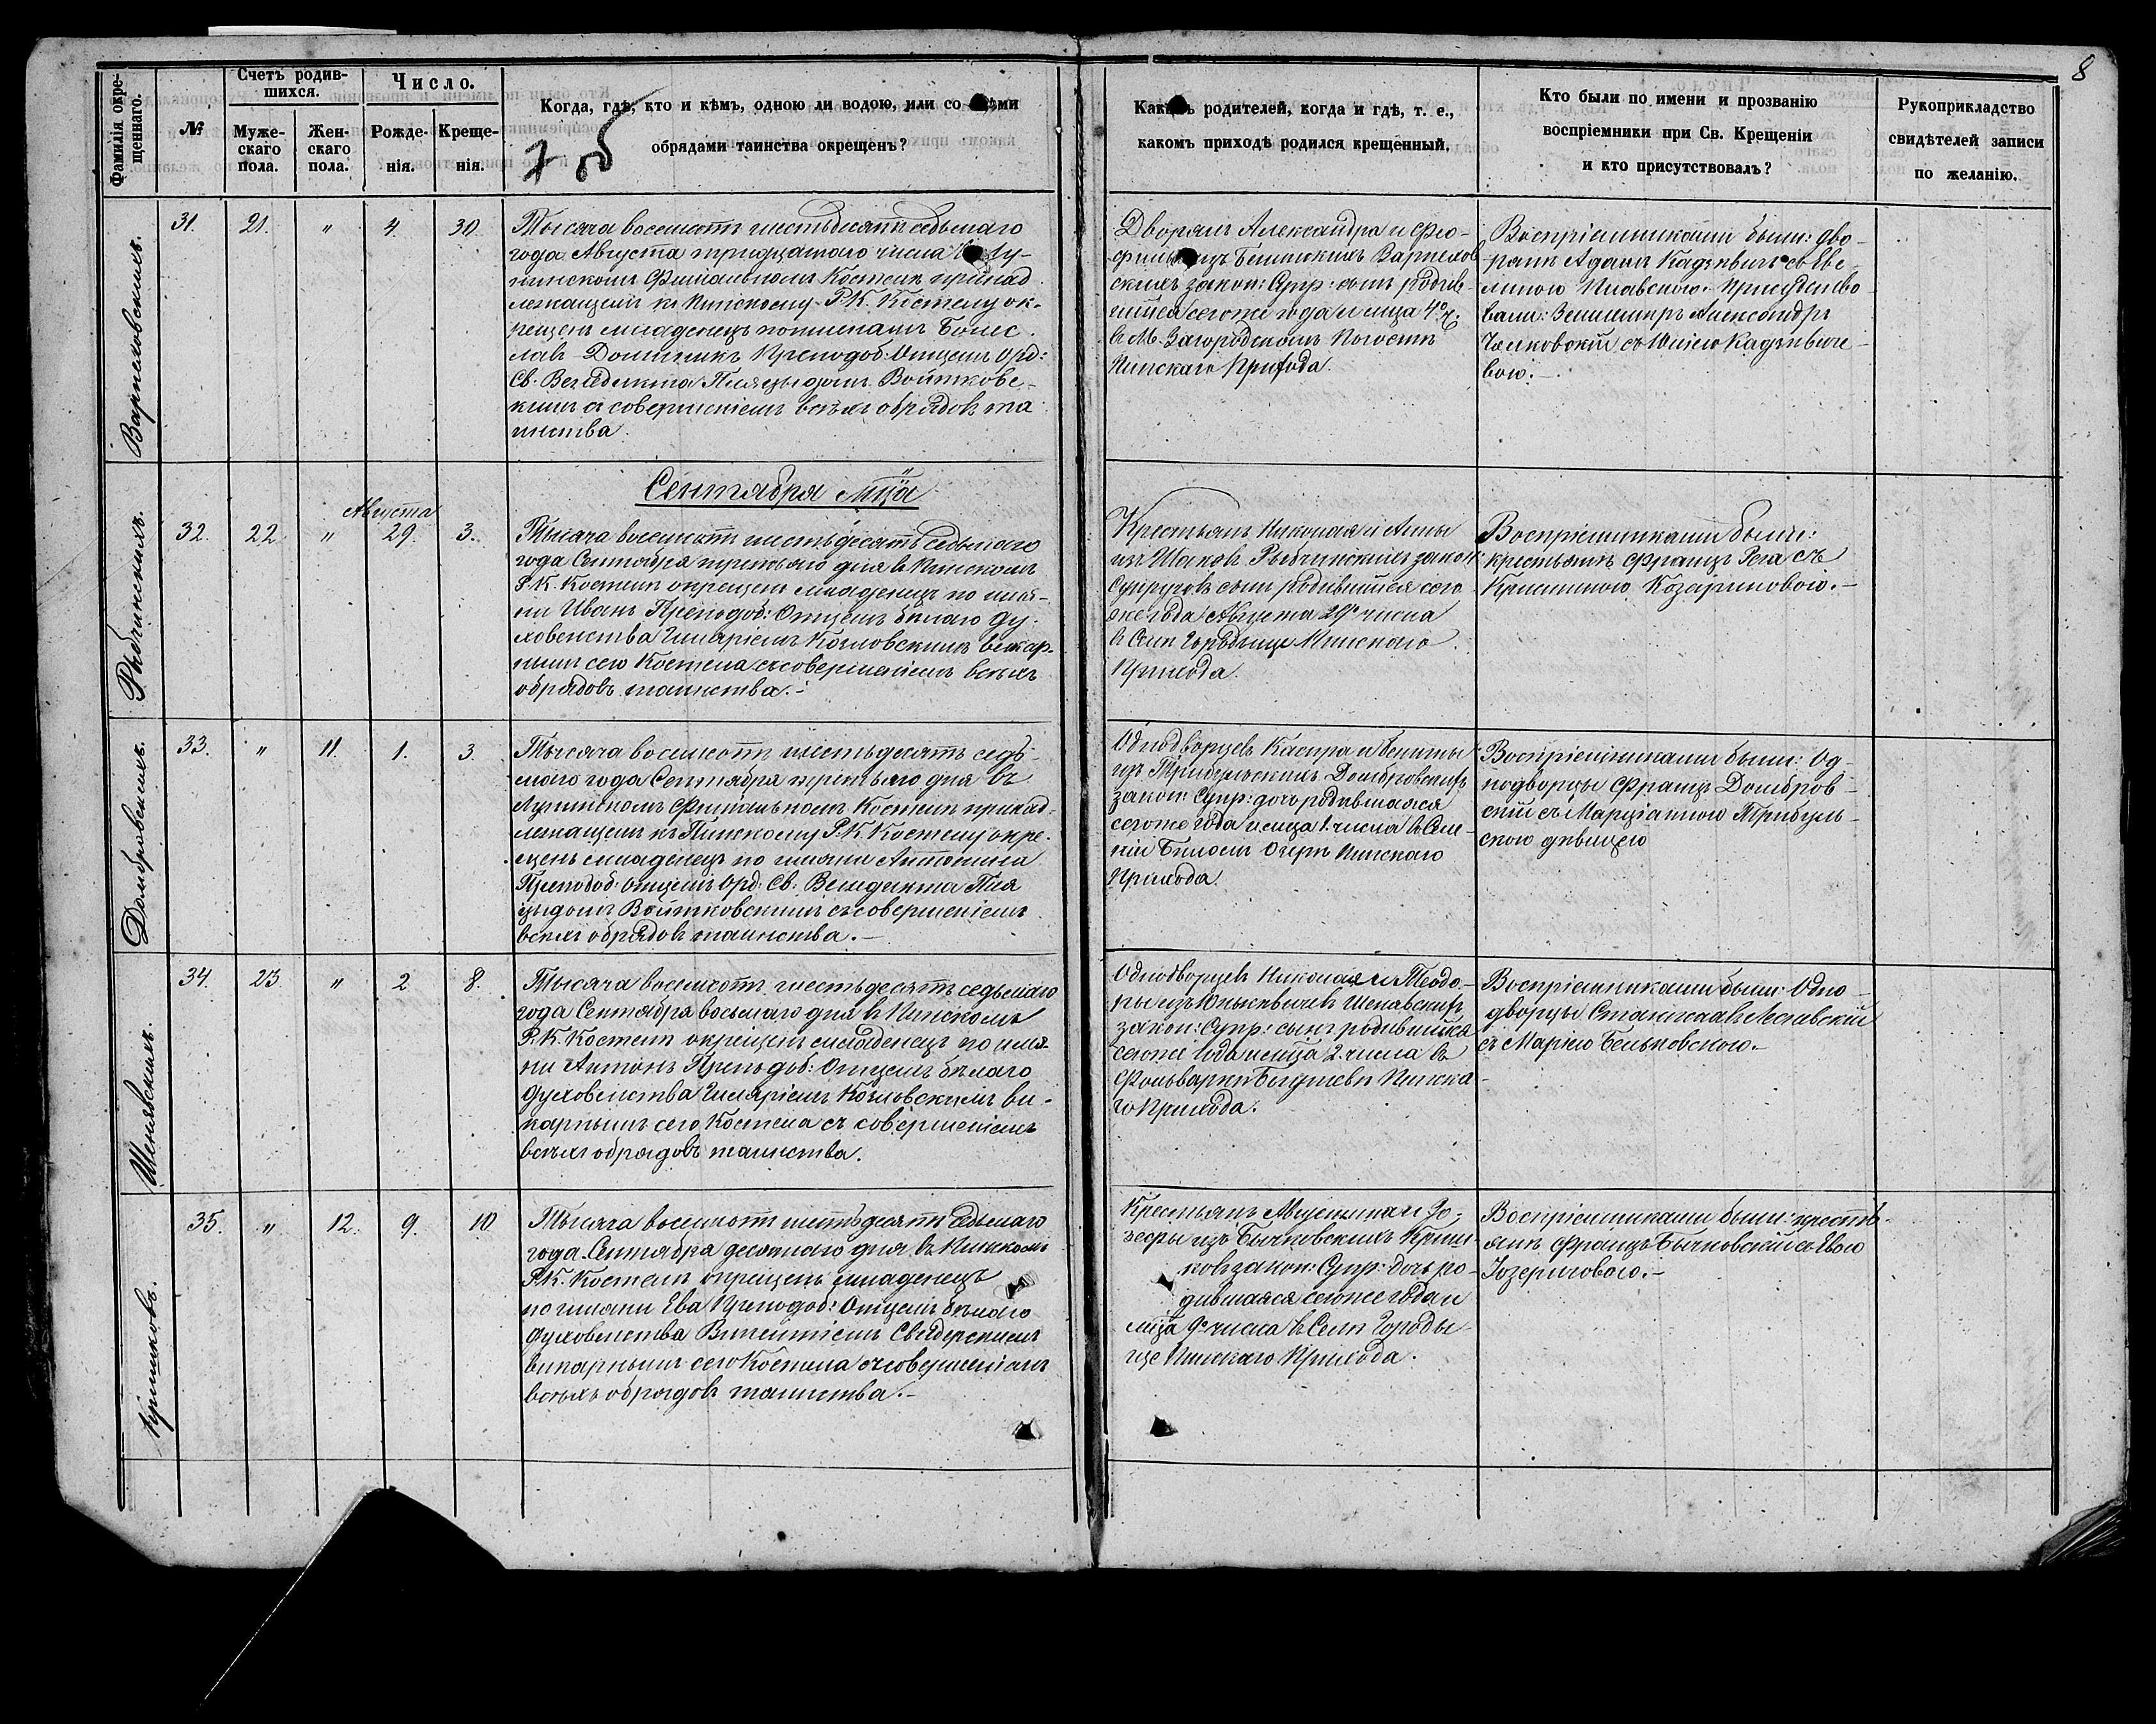 8
Фамилія окре-
щеннаго.
№
Счетъ родив-
шихся.
Муже-
скаго
пола.
Жен-
скаго
пола.
Число.
Рожде-
нія.
Креще-
нія.
Когда, гдѣ, кто и кѣмъ, одною ли водою, или со ми
обрядами таинства окрещенъ?
7 об
Как ъ родителей, когда и гдѣ, т. е.,
какомъ приходѣ родился крещенный.
Кто были по имени и прозванію
воспріемники при Св. Крещеніи
и кто присутствовалъ?
Рукоприкладство
свидѣтелей записи
по желанію.
31. 21. " 4. 30.
Тысяча восемьсотъ шестьдесятъ седьмаго
года Августа тридцатаго числа въ
Филіальномъ Костелѣ принад
лежащемъ къ Пинскому Р.К. Костелу ок-
рещенъ младенецъ по именамъ Болес
лавъ Доминикъ Преподоб: Отцемъ Орд:
Св. Венедикта Пляцыдомъ Войтковс-
кимъ съ совершеніемъ всѣхъ обрядовъ та
инства.
Дворянъ Александра и
закон: Супр: сынъ родив-
шійся сегоже года и мца 4го ч.
въ М. Загородскомъ Погостѣ
Пинскаго Прихода.
Воспріемниками были: дво-
ряне Адамъ съ Еве-
линою Присутство
вали: Александръ
съ
вою.-
Сентября Мца
Рыбчинскихъ.
32. 22. " Августа 29. 3.
Тысяча восемьсотъ шестьдесятъ седьмаго
года Сентября третьяго дня въ Пинскомъ
Р.К. Костелѣ окрещенъ младенецъ по имя-
ни Иванъ Преподоб: Отцемъ бѣлаго Ду-
ховенства Гиляріемъ Козловскимъ викар-
нымъ сего Костела съ совершеніемъ всѣхъ
обрядовъ таинства.-
Крестьянъ Николая и Анны
изъ Рыбчинскихъ закон:
Супруговъ сынъ родившійся сего
же года Августа 29го числа
въ Селѣ Городище Пинскаго
Прихода.
Воспріемниками были:
крестьяне Францъ Рега съ
Козариновою.-
Домбровскихъ.
33. " 11. 1. 3.
Тысяча восемьсотъ шестьдесятъ седь-
маго года Сентября третьяго дня въ
Филіальномъ Костелѣ принад-
лежащемъ къ Пинскому Р.К. Костелу окре-
щенъ младенецъ по имяни Антонина
Преподоб: Отцемъ Орд: Св: Венедикта Пля
цыдомъ Войтковскимъ съ совершеніемъ
всѣхъ обрядовъ таинства.-
Однодворцевъ Каспра и
изъ Трибульскихъ Домбровскихъ
закон: Супр: дочь родившаяся
сегоже года и мца 1. числа въ
Бѣломъ Озерѣ Пинскаго
Прихода.
Воспріемниками были: Од-
нодворцы Францъ Домбров-
скій съ Марціанною Трибуль-
скою дѣвицею
34. 23. " 2 8.
Тысяча восемьсотъ шестьдесятъ седьмаго
года Сентября восьмаго дня въ Пинскомъ
Р.К. Костелѣ окрещенъ младенецъ по имя-
ни Антонъ Преподоб: Отцемъ бѣлаго
Духовенства Гиляріемъ Козловскимъ ви-
карнымъ сего Костела съ совершеніемъ
всѣхъ обрядовъ таинства.
Однодворцевъ Николая и Теодо-
ры изъ
закон: Супр: сынъ родившійся
сегоже года и мца 2. числа въ
Фольваркѣ Пинска-
го Прихода.
Воспріемниками были: Одно-
дворцы Станиславъ
съ Маріею Беньковскою.-
35. " 12. 9. 10
Тысяча восемьсотъ шестьдесятъ седьмаго
года Сентября десятаго дня въ Пинскомъ
Р.К. Костелѣ окрещенъ младенецъ
по имяни Ева Преподоб: Отцемъ бѣлаго
Духовенства Викентіемъ Свидерскимъ
викарнымъ сего Костела съ совершеніемъ
всѣхъ обрядовъ таинства.-
Крестьянъ Августина и Ю-
зефы изъ Бычковскихъ
закон: Супр: дочь ро-
дившаяся сегоже года и
мца 9го числа въ Селѣ Городи-
ще Пинскаго Прихода.
Воспріемниками были: кресть-
яне Францъ Бычковскій съ Евою